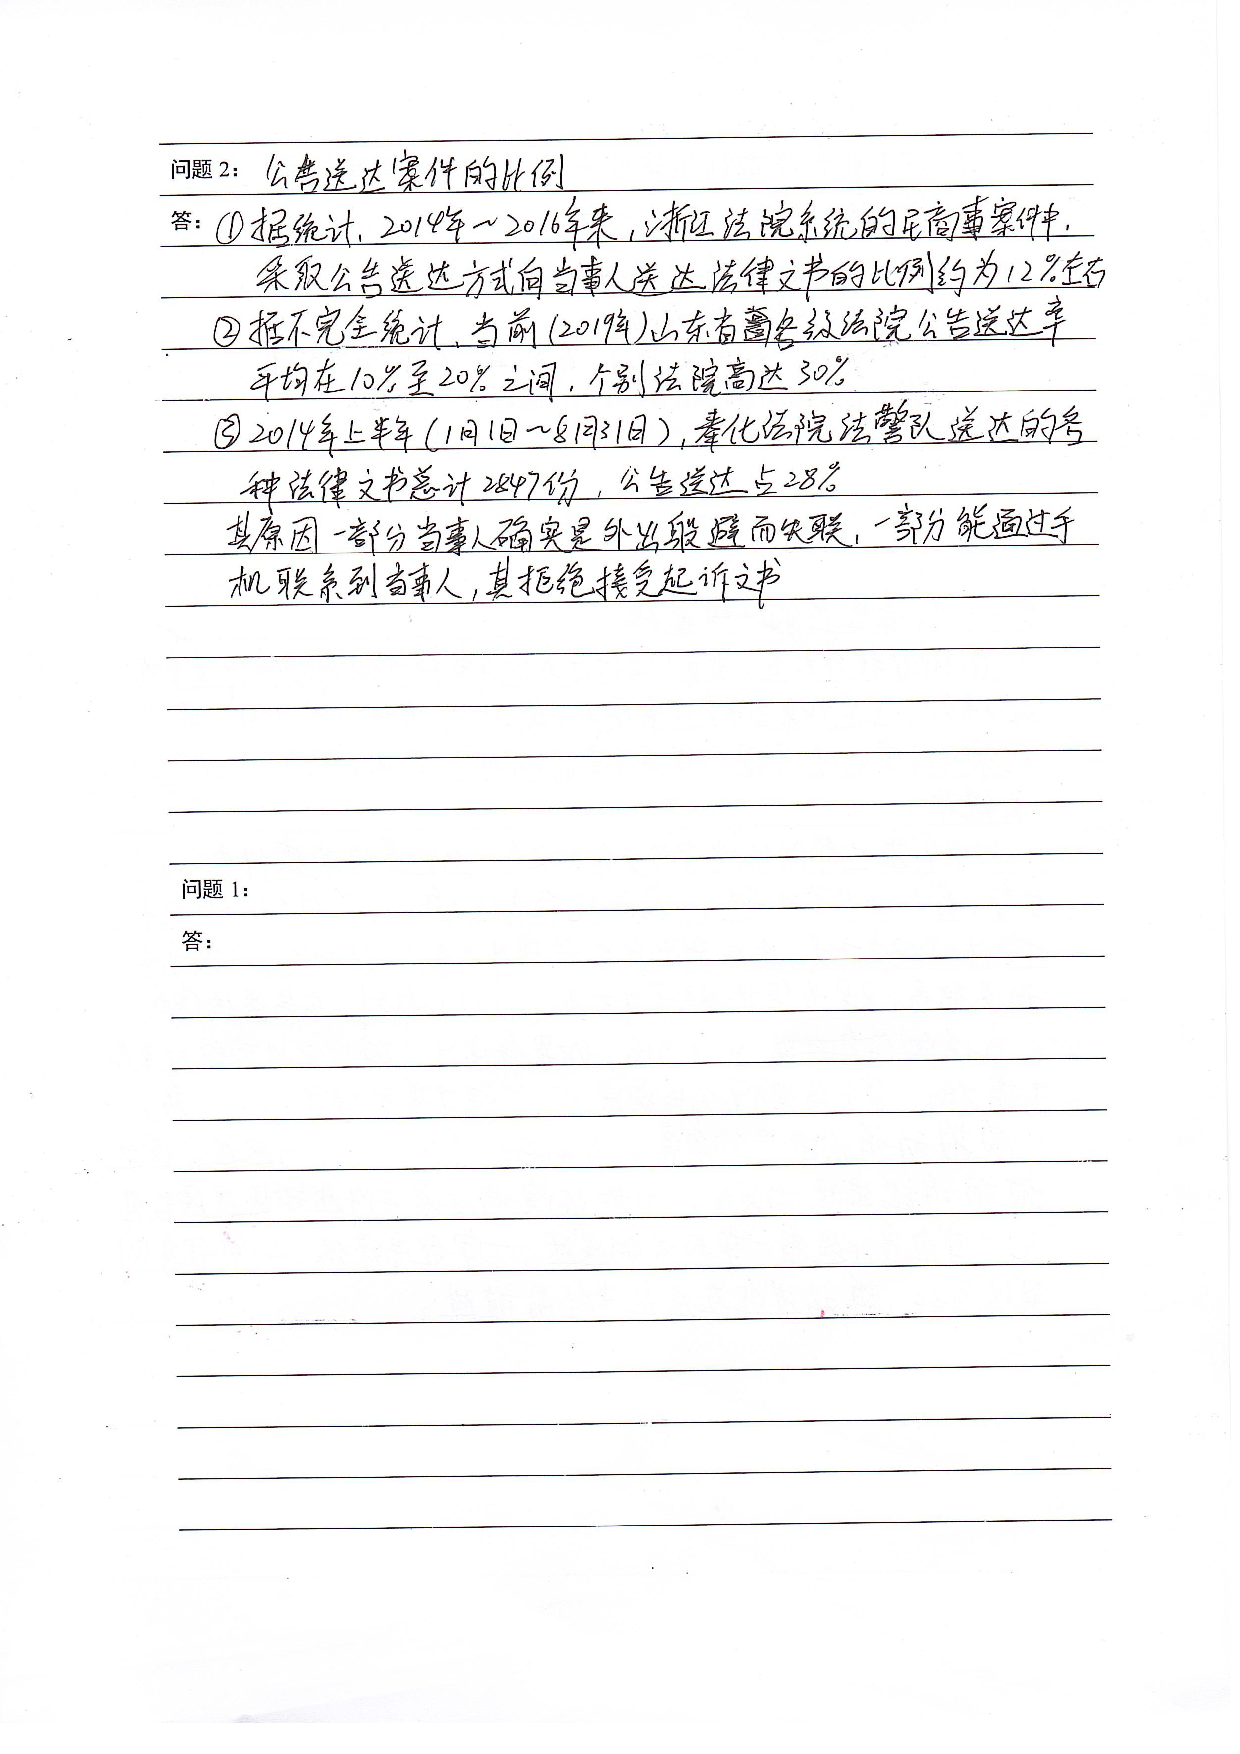 问题 2： 公告送达案件的比例
答：①据统计，2014年～2016年来，浙江法院系统的民商事案件中，
采取公告送达方式向当事人送达法律文书的比例约为12%左右
②据不完全统计，当前(2019年)山东省各级法院公告送达率
平均在10%至20%之间，个别法院高达30%
③2014年上半年(1月1日～8月31日)，奉化法院法警队送达的各
种法律文书总计2847份，公告送达占28%
其原因一部分当事人确实是外出躲避而失联，一部分能通过手
机联系到当事人，其拒绝接受起诉文书
问题 1：
答：